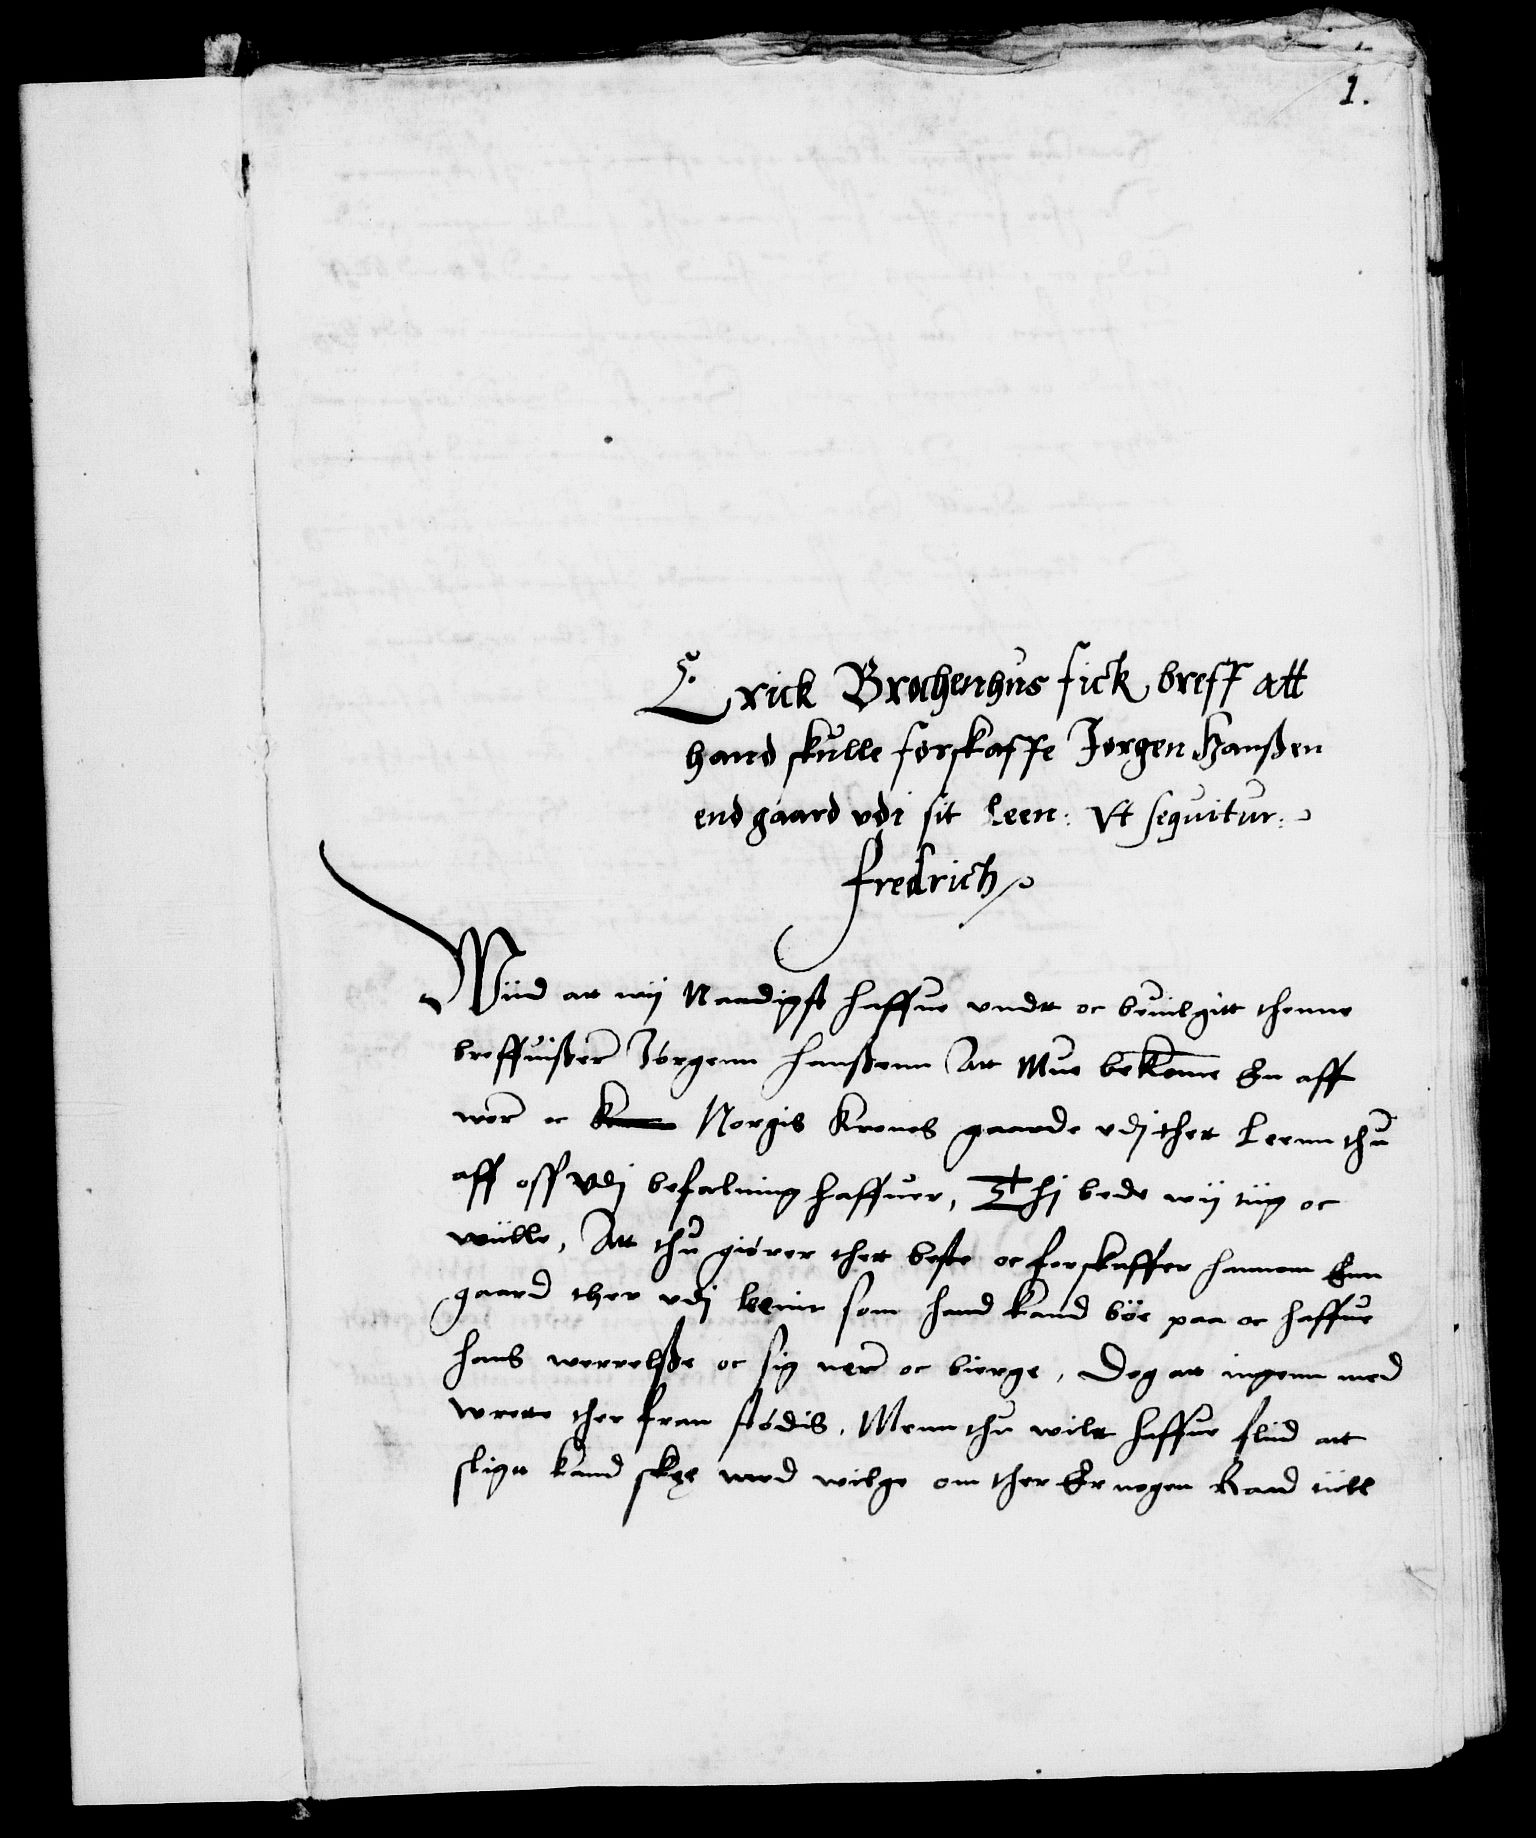 1.
Erick Brochenhus fick breff att
hand skulle forskaffe Jorgen Hanßen
end gaard vdi sit Leen: Vt sequitur:
fredrich
Wiid att wij Naadigst haffue vndtt oc beuilgitt thenne
breffuißer Jórgenn Hanßenn Att Mue bekome En aff
wor oc Norgis Krones gaarde vdj thet Leenn thu
aff oss vdj befalning haffuer, Thj bede wij tiig oc
wiille, Att thu giórer thet beste oc forskaffer hannom Enn
gaard ther vdj leenit som hand kand bóe paa oc haffue
hans werrelße oc sig ner oc bierge, Dog att ingenn med
wrette ther fran stódis, Menn thu wilt haffue fliid att
sligtt kand skee med wilge om ther Er nogen Raad tiill